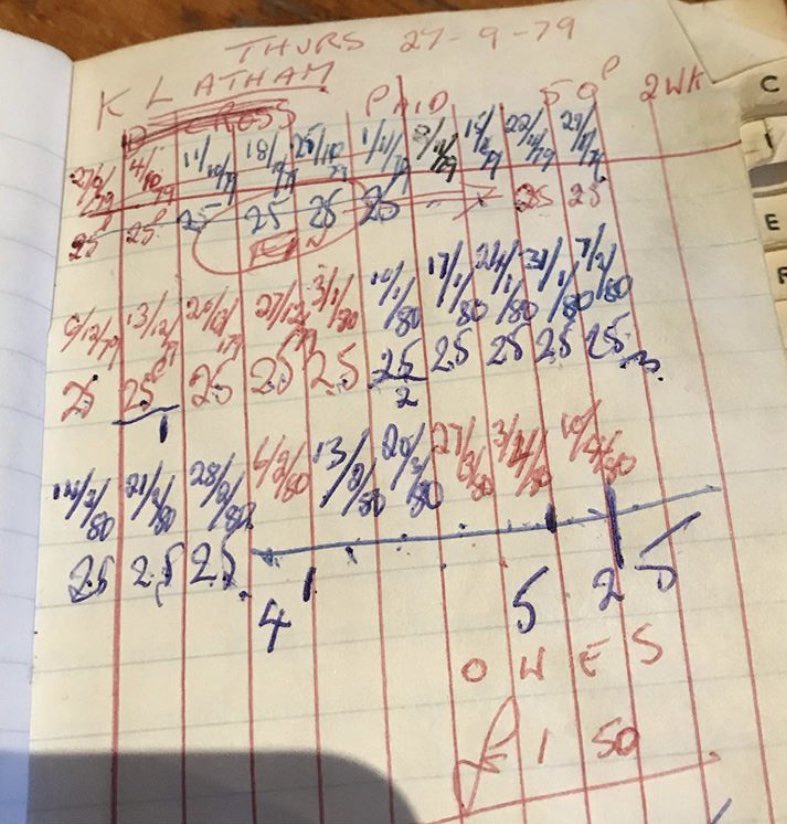 THURS 27-9-79
K LATHAM
PAID 50P 2WK
27/9/79 4/10/79 11/10/79 18/10/79 25/10/79 1/11/79 22/11/79 29/11/79
25 25P 25 25 25 25 25 25
6/12/79 13/12/79 20/12/79 27/12/79 3/1/80 10/1/80 17/1/80 24/1/80 31/1/80 7/2/80
25 25P 25 25 25 25 25 25 25 25
1 2 3
14/2/80 21/2/80 28/2/80 6/3/80 13/3/80 20/3/80 27/3/80 3/4/80 10/4/80
25 25 25
4 5 25
OWES
£1 50
C
I
E
F